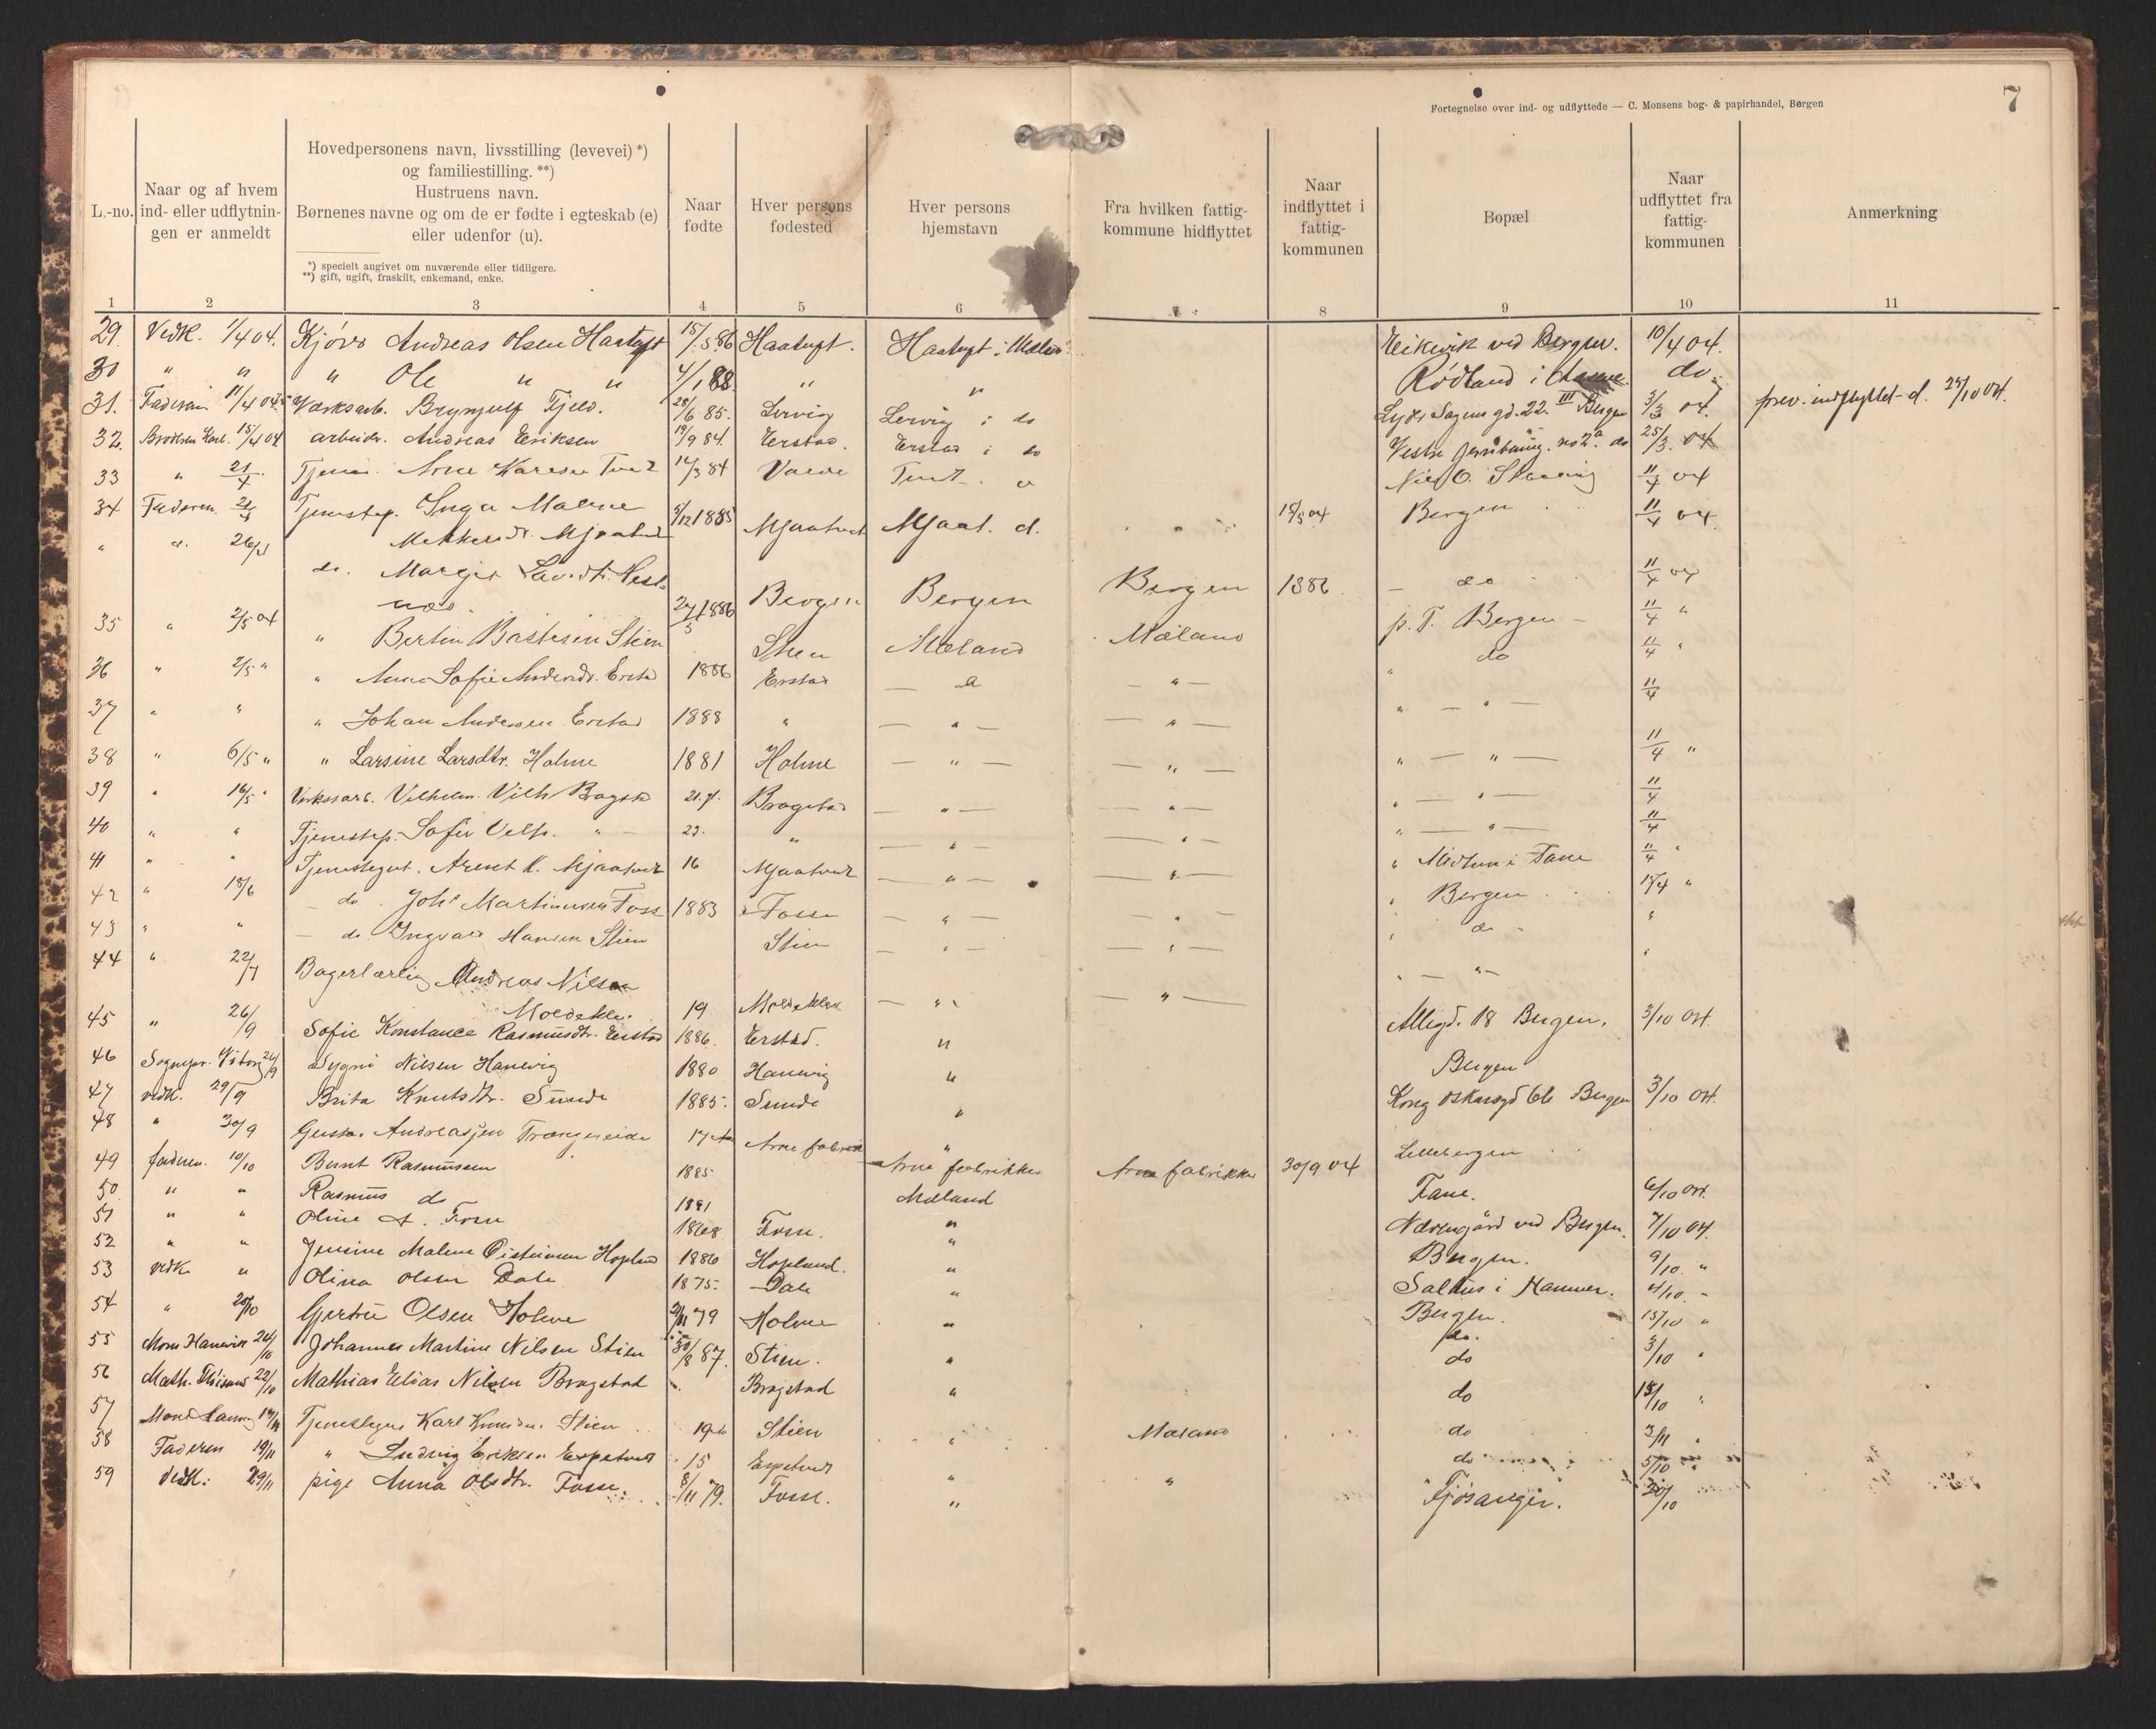 Fortegnelse over ind- og udflyttede — C. Monsens bog- & papirhandel, Bergen
7
L.-no.
Naar og af hvem ind- eller udflytnin- gen er anmeldt
Hovedpersonens navn, livsstilling (levevei) *)
og familiestilling. **)
Hustruens navn.
Børnenes navne og om de er fødte i egteskab (e)
eller udenfor (u).
*) specielt angivet om nuværende eller tidligere.
**) gift, ugift, fraskilt, enkemand, enke.
Naar fødte
Hver persons fødested
Hver persons hjemstavn
Fra hvilken fattig- kommune hidflyttet
Naar indflyttet i fattig- kommunen
Bopæl
Naar udflyttet fra fattig- kommunen
Anmerkning
1 2 3 4 5 6 7 8 9 10 11
29. Vedk. 1/4 04. Andreas Olsen Haatuft 15/5 86 Haatuft. Haatuft i ved Bergen. 10/4 04.
30 " " " Ole " " 4/1 88. " " Rødland i do.
31. Faderen 11/4 04 Værksarb. Brynjulf Fjeld. 28/6 85. Lervig Lervig i do Lyder Sagens gd. 22. III Bergen 3/3 04. prov. indflyttet d. 25/10 04.
32. 15/4 04 arbeider. Andreas Eriksen 19/9 84. Eerstad. Erstad i do Vestre no 2a. do 25/3. 04
33 " 21/4. Arne 14/3 84 Nils O. 11/4 04
34 Faderen. 21/4 Tjenestep. Inga Malene 5/12 1885 Mjaatveit Mjaat. d. 18/3 04 Bergen 11/4 04.
" d. 26/4 Mjaatveit
do. Margit 1886 Bergen Bergen Bergen 1886 — do 11/4 04
35 " 2/5 04 " Bertin Stien Stien Mæland Mæland p. T. Bergen — 11/4 "
36 " 2/5 " " Anna Sofie Andersdr. Erstad 1886 Erstad — " — — " — " do 11/4 "
37 " " " Johan Andersen Erstad 1888 " — " — — " — " — " — 11/4
38 " 6/5 " " Larsine Larsdtr. Holme 1881 Holme — " — — " — " — " — 11/4 "
39 " 16/5 " Verksarb. Vilhelm Vilh. Bragstad 21. Bragstad — " — — " — " — " — 11/4
40 " " Tjenestep. Sofie Vilh. " — 23. " — " — — " — " — " — 11/4
41 " " Tjenestegut. Arent K. Mjaatveit 16 Mjaatveit — " — — " — " Midtun i Fane 11/4 "
42 " 18/6 — do. Johs Martinusen Fosse 1883 Fosse — " — — " — " Bergen 15/4 "
43 " " — do. Ingvald Hansen Stien Stien — " — — " — " do "
44 " 22/7 Bagerlærling Andreas Nilsen " — " —
Moldeklev. 19 Moldeklev — " — — " —
45 " 26/9 Sofie Konstance Rasmusdtr. Erstad 1886. Eerstad. " Allegd. 18 Bergen. 3/10 04.
46 Sognepr. 26/9 Nilsen Hanevig 1880 Hanevig " Bergen
47 vedk. 29/9 Brita Knutsdtr. Sunde 1885. Sunde " Kong Oskarsgd Bergen 3/10 04.
48 " 30/9 Gustav Andreassen Trængereide 17 Arne fabrik " Lillebergen
49 faderen. 10/10 Bernt Rasmussen 1885 Arne fabrikker Arne fabrikker 30/9 04
50. " " Rasmus do 1881 Mæland Fane. 6/10 04.
51 " " Oline A. Fosse 1868 Fosse. " ved Bergen. 7/10 04.
52 " " Jensine Malene Hopland 1886 Hopland. " Bergen. 9/10. "
53 vedk " Olina Olsen Dale 1875. Dale " Salhus i Hammer. 4/10. "
54 " 20/10 Gjertrü Olsen Holme 79 Holme " Bergen. 15/10 "
do.
55 Mons Hanevik 24/10 Johannes Martine Nilsen Stien 30/8 87. Stien. " do 3/10 "
56 Math. 22/10 Mathias Elias Nilsen Bragstad Bragstad " do 15/10 "
57 Mons Tjenestegut Karl Stien 19 Stien " Mæland do 3/11 "
58 Faderen 19/11 " Ludvig Eriksen Espetveit 15 Espetveit " " do 5/10 "
59 Vedk: 29/11 pige Anna Olsdtr. Fosse. 8/11 79. Fosse. " Fjøsanger. 30/10